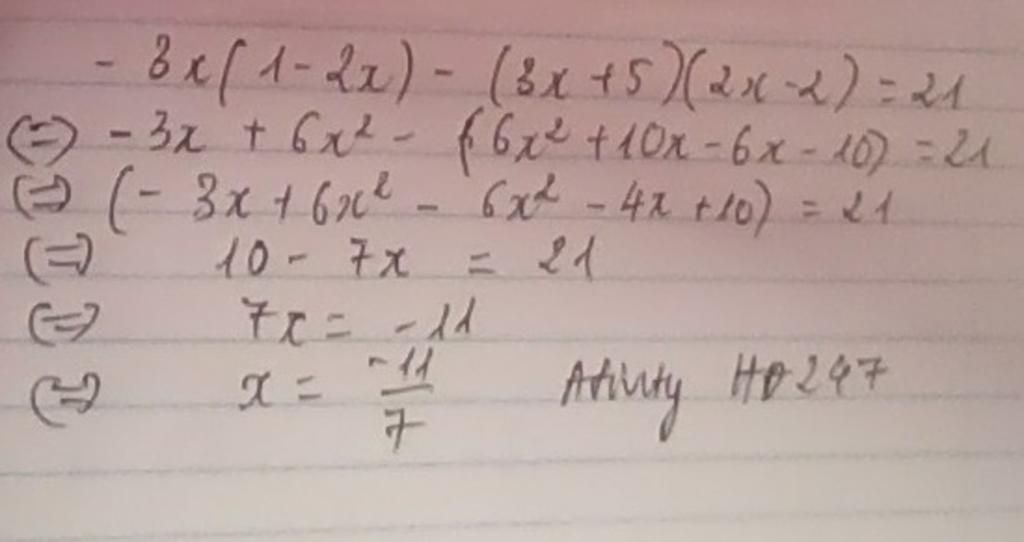 - 3x(1-2x) - (3x+5)(2x-2) = 21
(=) -3x + 6x² - (6x² + 10x - 6x - 10) = 21
(=) (- 3x + 6x² - 6x² - 4x + 10) = 21
(=) 10 - 7x = 21
(=) 7x = -11
(=) x = -11/7 HD247